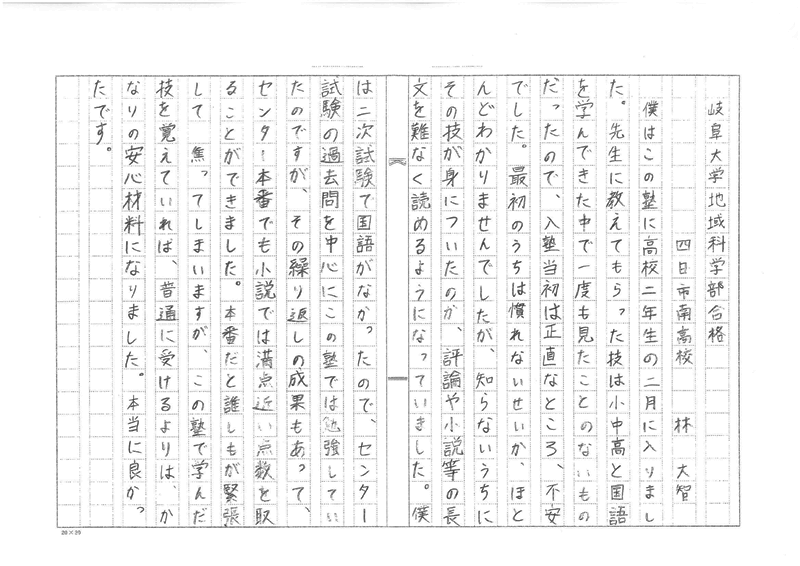 岐阜大学地域科学部合格
四日市南高校 林 大智
僕はこの塾に高校二年生の二月に入りまし
た。先生に教えてもらった技は小中高と国語
を学んできた中で一度も見たことのないもの
だったので、入塾当初は正直なところ、不安
でした。最初のうちは慣れないせいか、ほと
んどわかりませんでしたが、知らないうちに
その技が身についたのか、評論や小説等の長
文を難なく読めるようになっていました。僕
は二次試験で国語がなかったので、センター
試験の過去問を中心にこの塾では勉強してい
たのですが、その繰り返しの成果もあって、
センター本番でも小説では満点近い点数を取
ることができました。本番だと誰しもが緊張
して焦ってしまいますが、この塾で学んだ
技を覚えていれば、普通に受けるよりは、か
なりの安心材料になりました。本当に良かっ
たです。
20×20